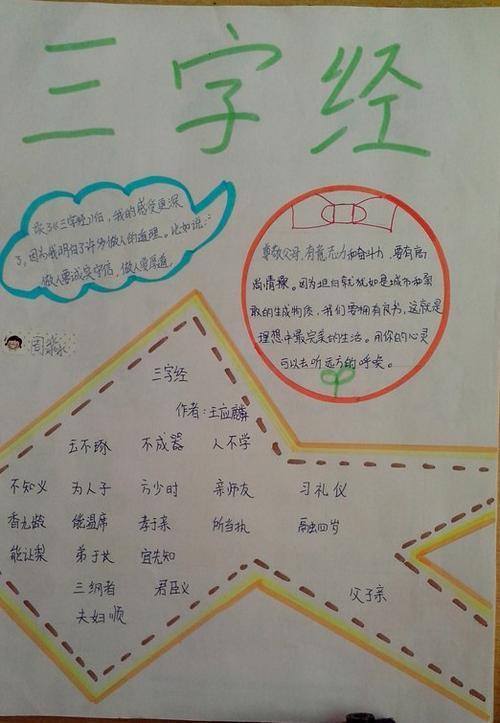 三字经
读了《三字经》后,我的感受更深
了,因为我明白了许多做人的道理。比如说:
做人要诚实守信,做人要厚道。
尊敬父母,有毅力和奋斗力,要有高
尚情操。因为
的生成物质,我们要拥有良书,这就是
理想中最完美的生活。用你的心灵
可以去听远方的呼唤。
周
三字经
作者:王应麟
玉不琢 不成器 人不学
不知义 为人子 方少时 亲师友 习礼仪
香九龄 能温席 孝于亲 所当执 融四岁
能让梨 弟于长 宜先知
三纲者 君臣义 父子亲
夫妇顺